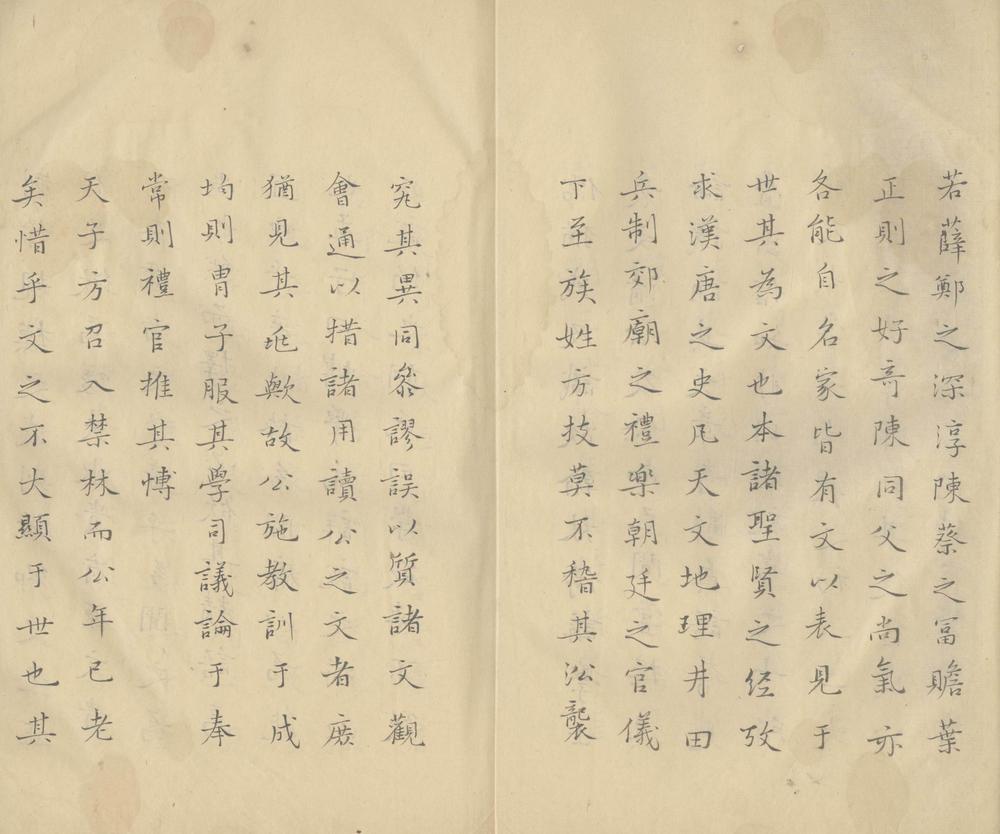 若薛鄭之深淳陳蔡之冨贍葉
正則之好竒陳同父之尚氣亦
各能自名家皆有文以表見于
世其為文也本諸聖賢之经攷
求漢唐之史凡天文地理井田
兵制郊廟之禮樂朝廷之官儀
下至族姓方技莫不稽其沿襲
究其異同叅謬誤以質諸文觀
會通以措諸用讀公之文者庻
猶見其𠃵歟故公施教訓于成
均則胄子服其學司議論于奉
常則禮官推其愽
天子方召入禁林而公年已老
矣惜乎文之不大顯于世也其